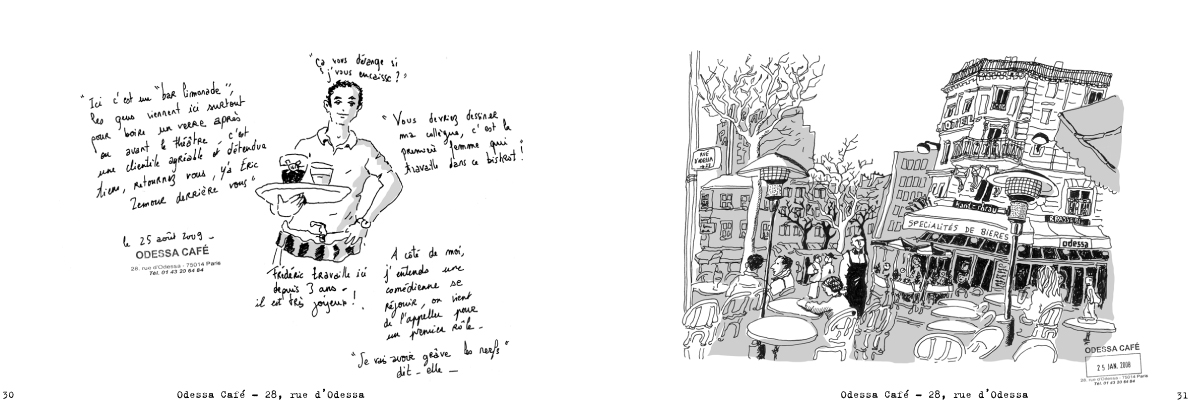 "Ça vous dérange si
j'vous encaisse ?"
"Ici c'est un "bar limonade",
les gens viennent ici surtout
pour boire un verre après
ou avant le théâtre - c'est
une clientèle agréable et détendue
tiens, retournez vous, y'a Eric
Zemour derrière vous"
"Vous devriez dessiner
ma collègue, c'est la
première femme qui
travaille dans ce bistrot !
le 25 août 2009 -
ODESSA CAFÉ
28, rue d'Odessa - 75014 Paris
Tél. 01 43 20 64 84
Frédéric travaille ici
depuis 3 ans -
il est très joyeux !
A côté de moi,
j'entends une
comédienne se
réjouir, on vient
de l'appeller pour
un premier rôle -
"Je vais avoir grave les nerfs"
dit - elle -
30
Odessa Café - 28, rue d'Odessa
RUE
D'ODESSA
HOTEL
SPECIALITÉS DE BIERES
BRASSERIE
odessa
ODESSA CAFÉ
25 JAN. 2008
28, rue d'Odessa - 75014 Paris
Tél. 01 43 20 64 84
Odessa Café - 28, rue d'Odessa
31